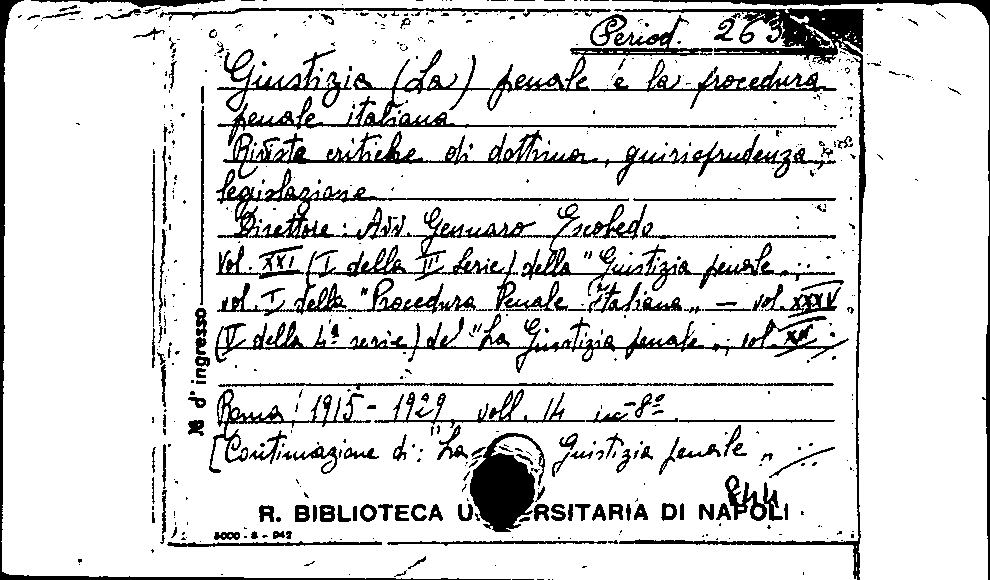 Period. 263
Giustizia (La) penale e la procedura
penale italiana
Riviste critiche di dottrina, guirisprudenza,
legislazione
Direttore: Avv. Gennaro Escobedo
Vol. XXI (I della III Serie) della "Giustizia penale„;
vol. I della "Procedura Penale Italiana„ — vol. XXXV
(V della 4ª serie) del "La Giustizia penale„; vol. XV
Roma, 1915-1929, voll. 14 in-8º
[Continuazione di: "La Giustizia penale„
R. BIBLIOTECA UNIVERSITARIA DI NAPOLI
5000 - 8 - 942
№ d' ingresso